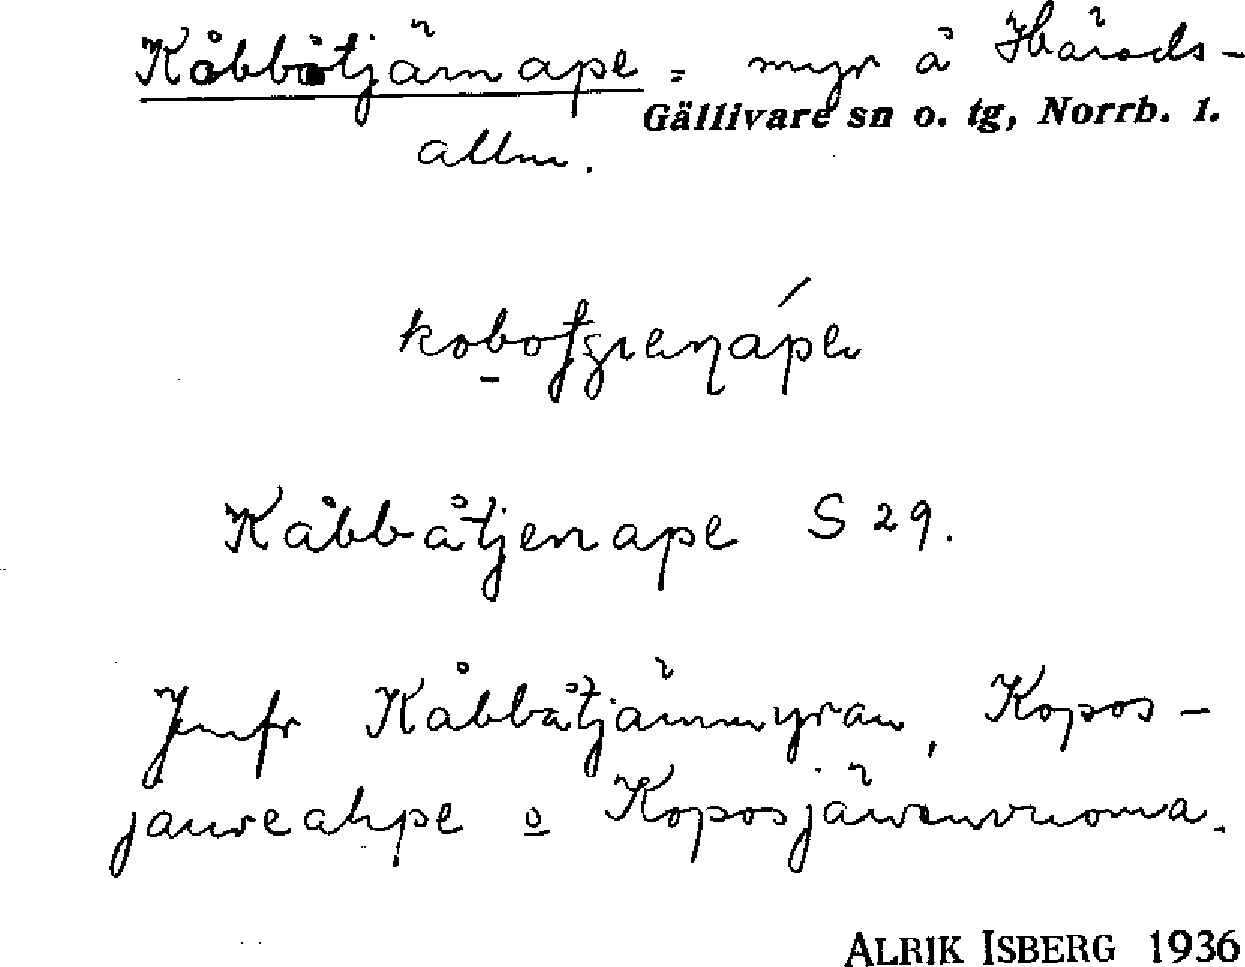 Kåbbåtjärnape = myr å Härads-
Gällivare sn o. tg, Norrb. l.
allm.
Kåbbåtjenape S 29.
Jmfr Kåbbåtjärnmyran, Kopos-
jaureahpe o Koposjärvenvuoma.
ALRIK ISBERG 1936